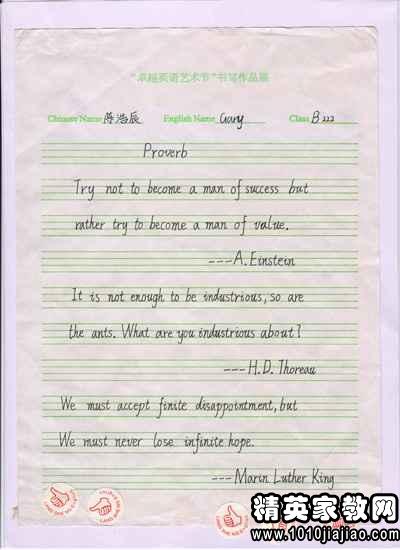 "卓越英语艺术节"书写作品展
Chinese Name 陈浩辰 English Name Gary Class B222
Proverb
Try not to become a man of success but
rather try to become a man of value.
---A.Einstein
It is not enough to be industrious, so are
the ants. What are you industrious about?
---H.D.Thoreau
We must accept finite disappointment, but
We must never lose infinite hope.
---Marin Luther King
精英家教网
www.1010jiajiao.com